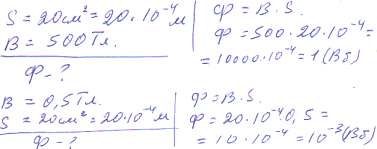 S = 20см² = 20·10⁻⁴м
B = 500Тл.
Ф-?
Ф = B·S.
Ф = 500·20·10⁻⁴ =
= 10000·10⁻⁴ = 1 (Вб)
B = 0,5Тл.
S = 20см² = 20·10⁻⁴м
Ф-?
Ф = B·S.
Ф = 20·10⁻⁴0,5 =
= 10·10⁻⁴ = 10⁻³(Вб)